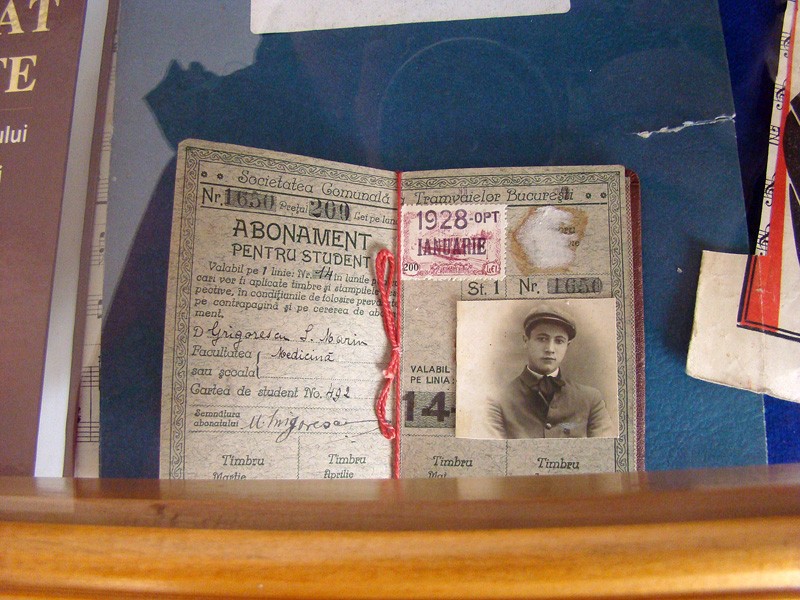 AT
TE
ului
i
Societatea Comunală a Tramvaielor București
Nr. 1650 Prețul 200 Lei pe lună
ABONAMENT
PENTRU STUDENT
Valabil pe 1 linie: Nr. 14 în lunile pe
cari vor fi aplicate timbre și stampilele
pective, în condițiunile de folosire prevă
pe contrapagină și pe cererea de abo
ment.
D Grigorescu S. Marin
Facultatea Medicină
sau școala
Cartea de student No. 492
Semnătura
abonatului M Grigorescu
Timbru
Martie
Timbru
Aprilie
1928-OPT
IANUARIE
200 LEI
St. 1 Nr. 1650
VALABIL
PE LINIA:
14
Timbru
Mai
Timbru